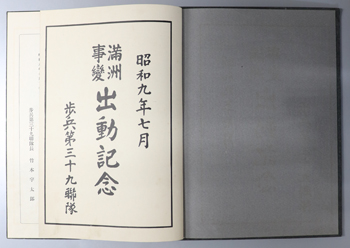 昭和九年七月
満洲
事變
出動記念
歩兵第三十九聯隊